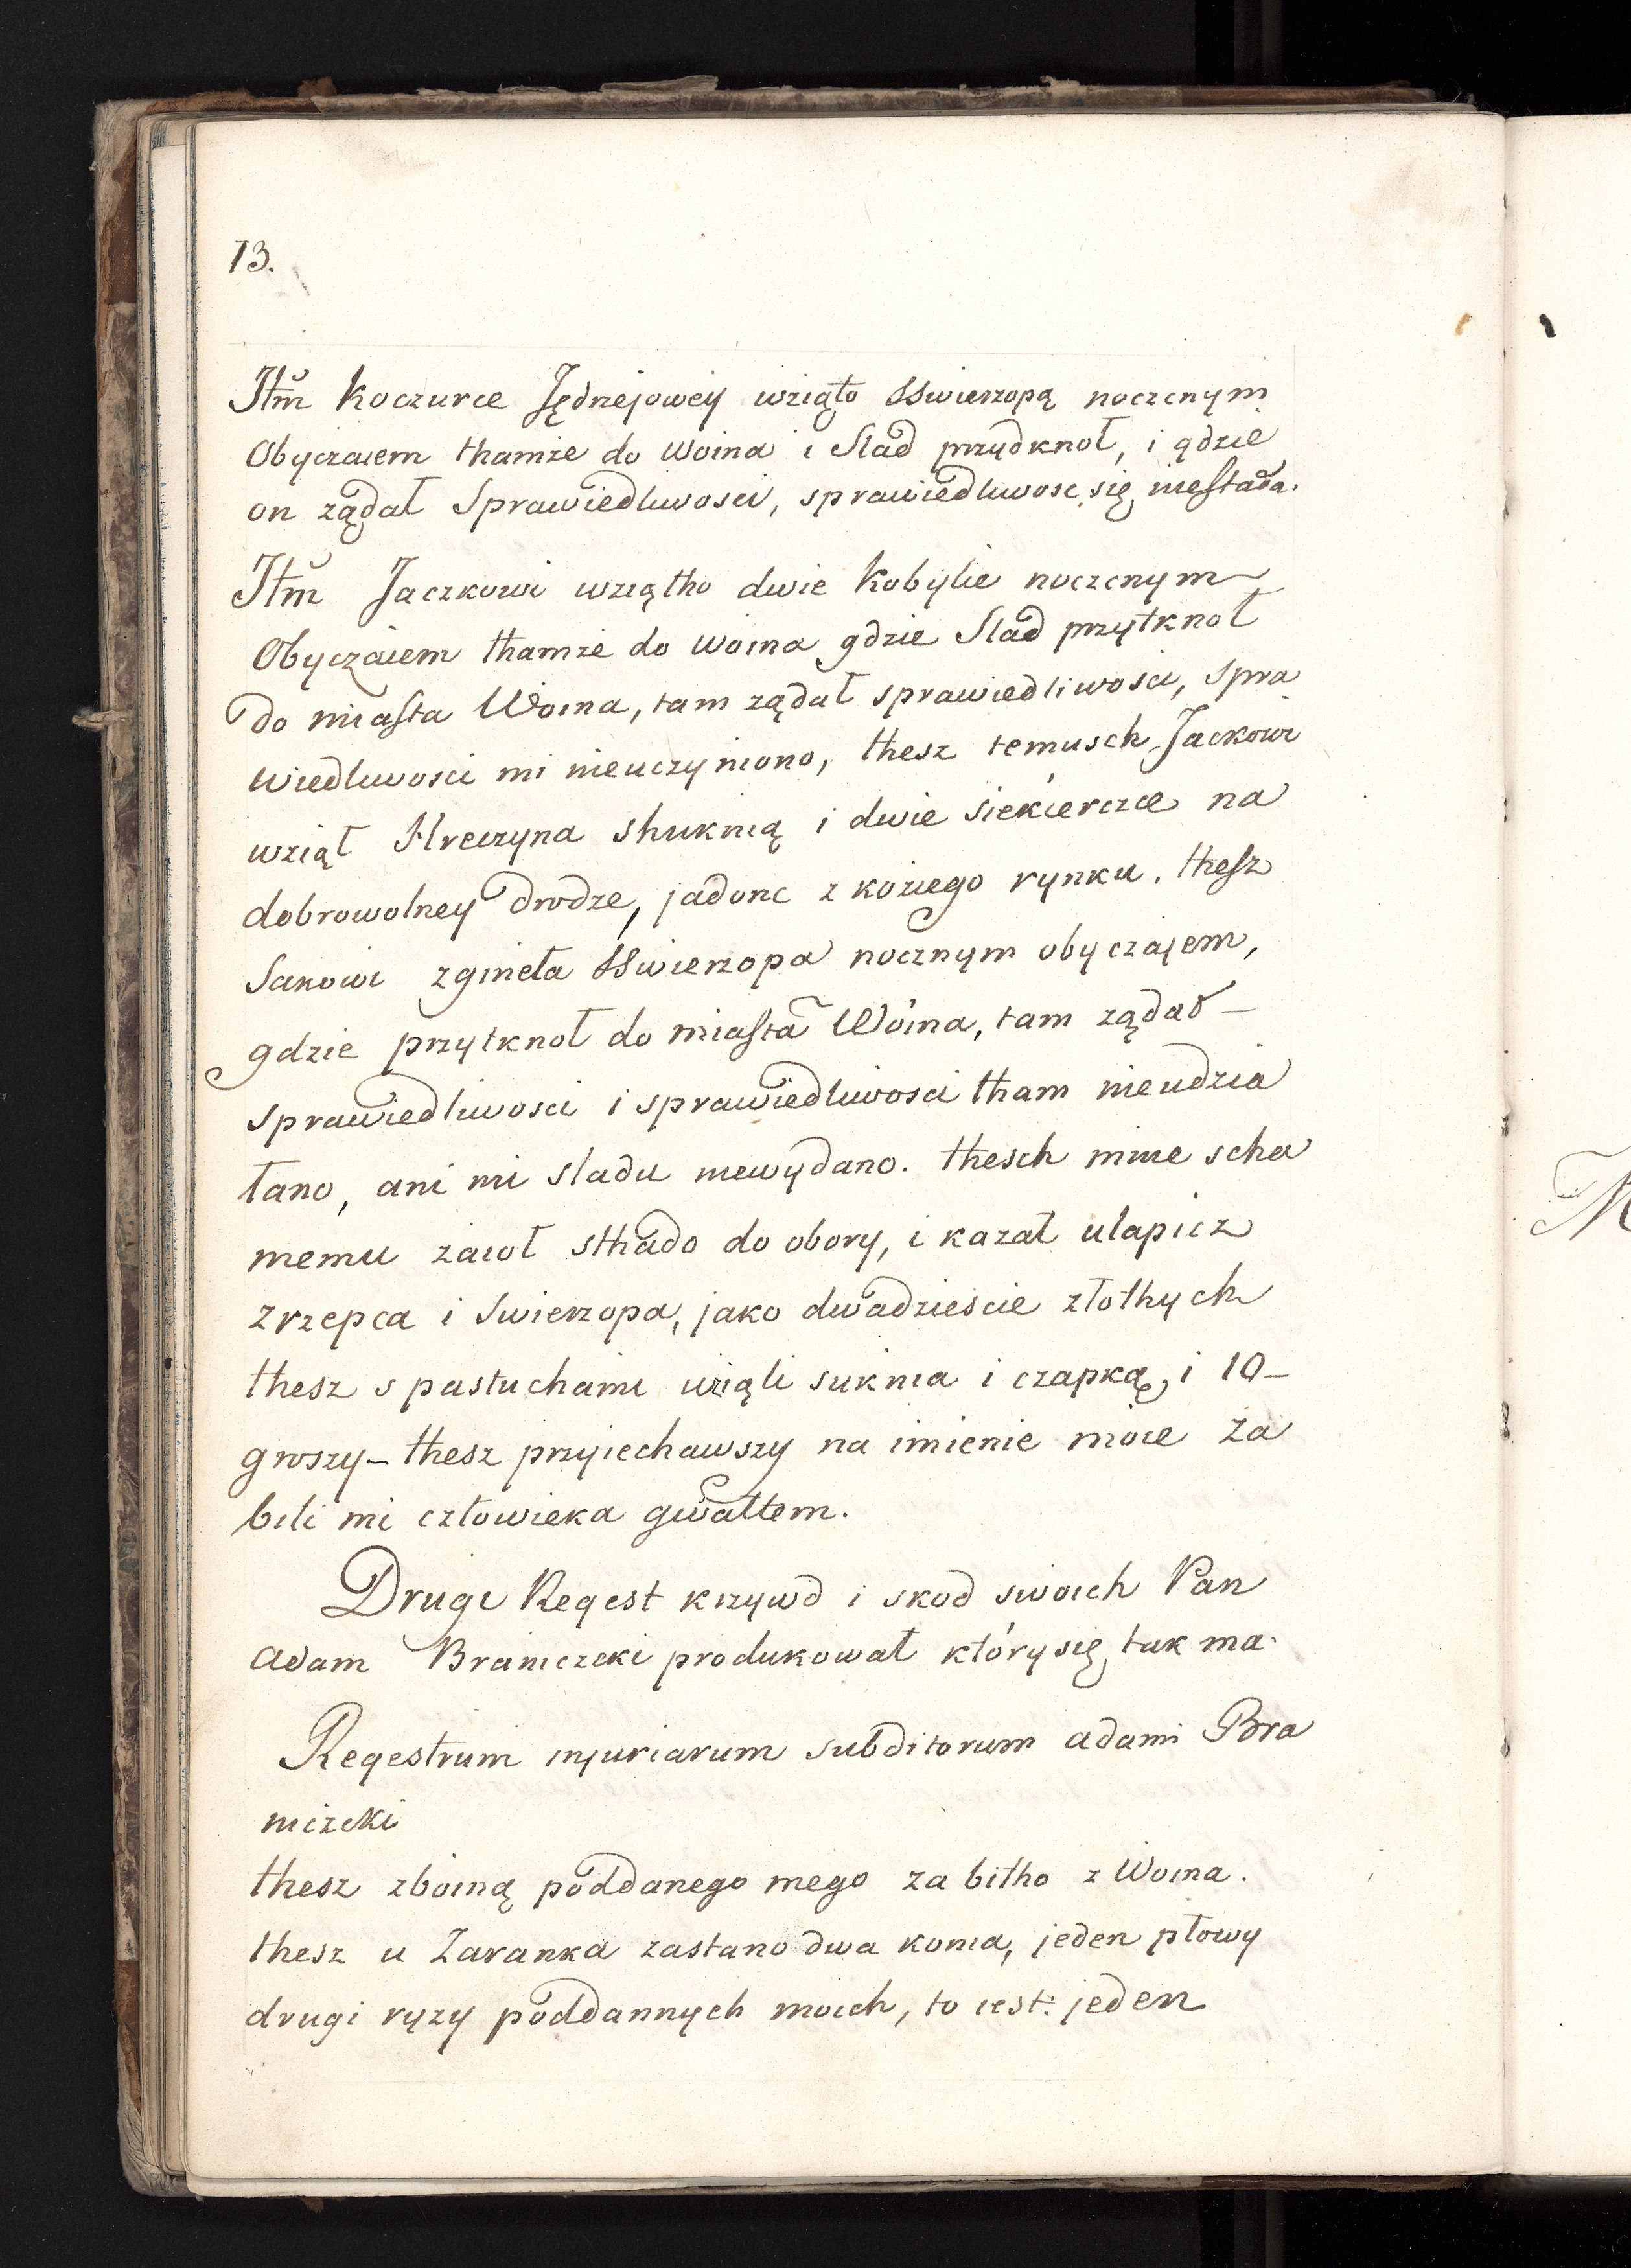 13.
Itm̃ Koczurce Jędrzejowey wziąto Swierzopą noczenym
Obyczaiem thamże do Woina i Slad przydknoł, i gdzie
on ządał Sprawiedliwosci, sprawiedliwosc się niestała.
Itm̃ Jaczkowi wziątho dwie Kobylie noczcnym
Obyczaiem thamże do Woina gdzie Slad przytknoł
do miasta Woina, tam ządał sprawiedliwosci, spra
wiedliwosci mi nieuczyniono, thesz temusch Jackowi
wziął Hreczyna shuknią i dwie siekiercze na
dobrowolney drodze, jadonc z koziego rynku. thesz
Sakowi zgineła Swierzopa nocznym obyczajem,
gdzie przytknoł do miasta Woina, tam ządał -
sprawiedliwosci i sprawiedliwosci tham nieudzia
łano, ani mi sladu niewydano. thesch mnie scha
memu zaioł sthado do obory, i kazał ulapicz
zrzepca i Swierzopa, jako dwadziescie złothych
thesz s pastuchami wziąli suknia i czapką, i 10-
groszy - thesz przyiechawszy na imienie moie za
bili mi człowieka gwałtem.
Drugi Regest krzywd i skod swoich Pan
Adam Braniczcki produkował który się tak ma
Regestrum injuriarum subditorum adami Bra
niczcki
thesz zboiną poddanego mego zabitho z Woina.
thesz u Zaranka zastano dwa konia, jeden płowy
drugi ryzy poddannych moich, to iest: jeden
M